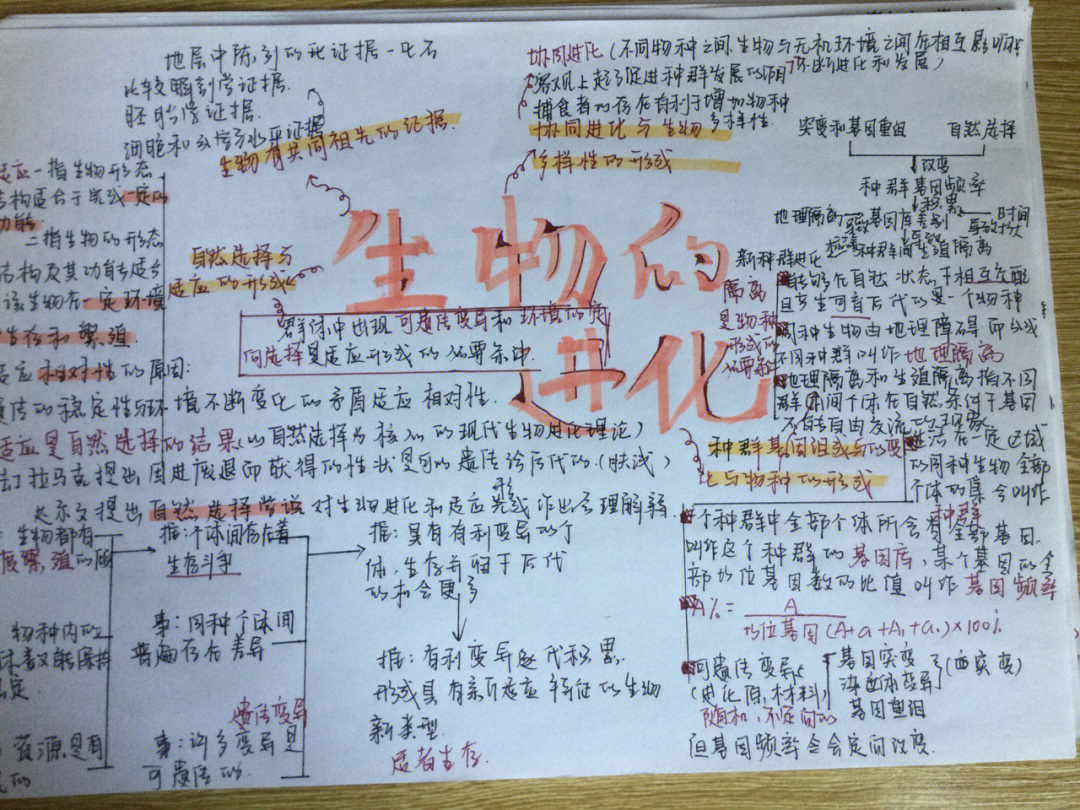 生物的
进化
地层中陈列的死证据-化石
比较解剖学证据.
胚胎学证据.
细胞和分子水平证据
生物有共同祖先的证据.
协同进化(不同物种之间.生物与无机环境之间在相互影响中
不断进化和发展)
客观上起了促进种群发展的作用
捕食者的存在有利于增加物种
多样性.
协同进化与生物
多样性的形成
突变和基因重组 自然选择
改变
种群基因频率
积累
地理隔离 导致 基因库差别 时间
导致
新种群进化 种群间生殖隔离
隔离
是物种
形成的
必要条件
能够在自然状态下相互交配
且产生可育后代的是一个物种
同种生物由地理障碍而分成
不同种群叫作地理隔离
地理隔离和生殖隔离指不同
群体间个体在自然条件下基因
不能自由交流的现象.
种群基因组成与的变
化与物种的形成
生活在一定区域
的同种生物全部
个体的集合叫作
种群
一个种群中全部个体所含有全部基因.
叫作这个种群的基因库,某个基因的全
部的位基因数的比值叫作基因频率
A%=
A
的位基因(A+a+A₁+a₁)×100%
可遗传变异
(进化原材料)
随机、不定向的
基因突变
染色体变异
基因重组
(西突变)
但基因频率会会定向改变.
适应一指生物形态
结构适合于完成一定的
功能
二指生物的形态
结构及其功能适合
该生物在一定环境
生存和繁殖
自然选择与
适应的形成
群体中出现可遗传变异和环境的定
向选择是适应形成的必要条件.
适应相对性的原因:
遗传的稳定性与环境不断变化的矛盾适应相对性.
适应是自然选择的结果(以自然选择为核心的现代生物进化理论)
拉马克提出因进废退而获得的性状是可以遗传给后代的.(肤浅)
达尔文提出自然选择学说对生物进化和适应形成作出合理解释.
生物都有
繁殖的
物种内的
稳定
资源是有
限的
推:个体间存在着
生存斗争
事:同种个体间
普遍存在差异
遗传变异
事:许多变异是
可遗传的.
推:具有有利变异的个
体,生存并留下后代
的机会更多
推:有利变异逐代积累.
形成具有新适应特征的生物
新类型
适者生存.